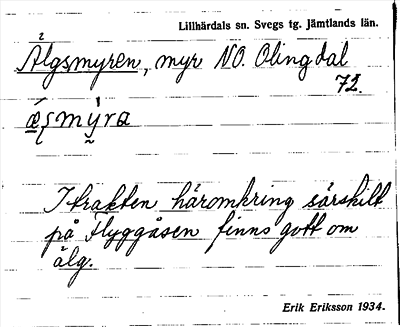 Lillhärdals sn. Svegs tg. Jämtlands län.
Älgsmyren, myr NO. Olingdal
72.
I trakten häromkring särskilt
på Flyggåsen finns gott om
älg.
Erik Eriksson 1934.